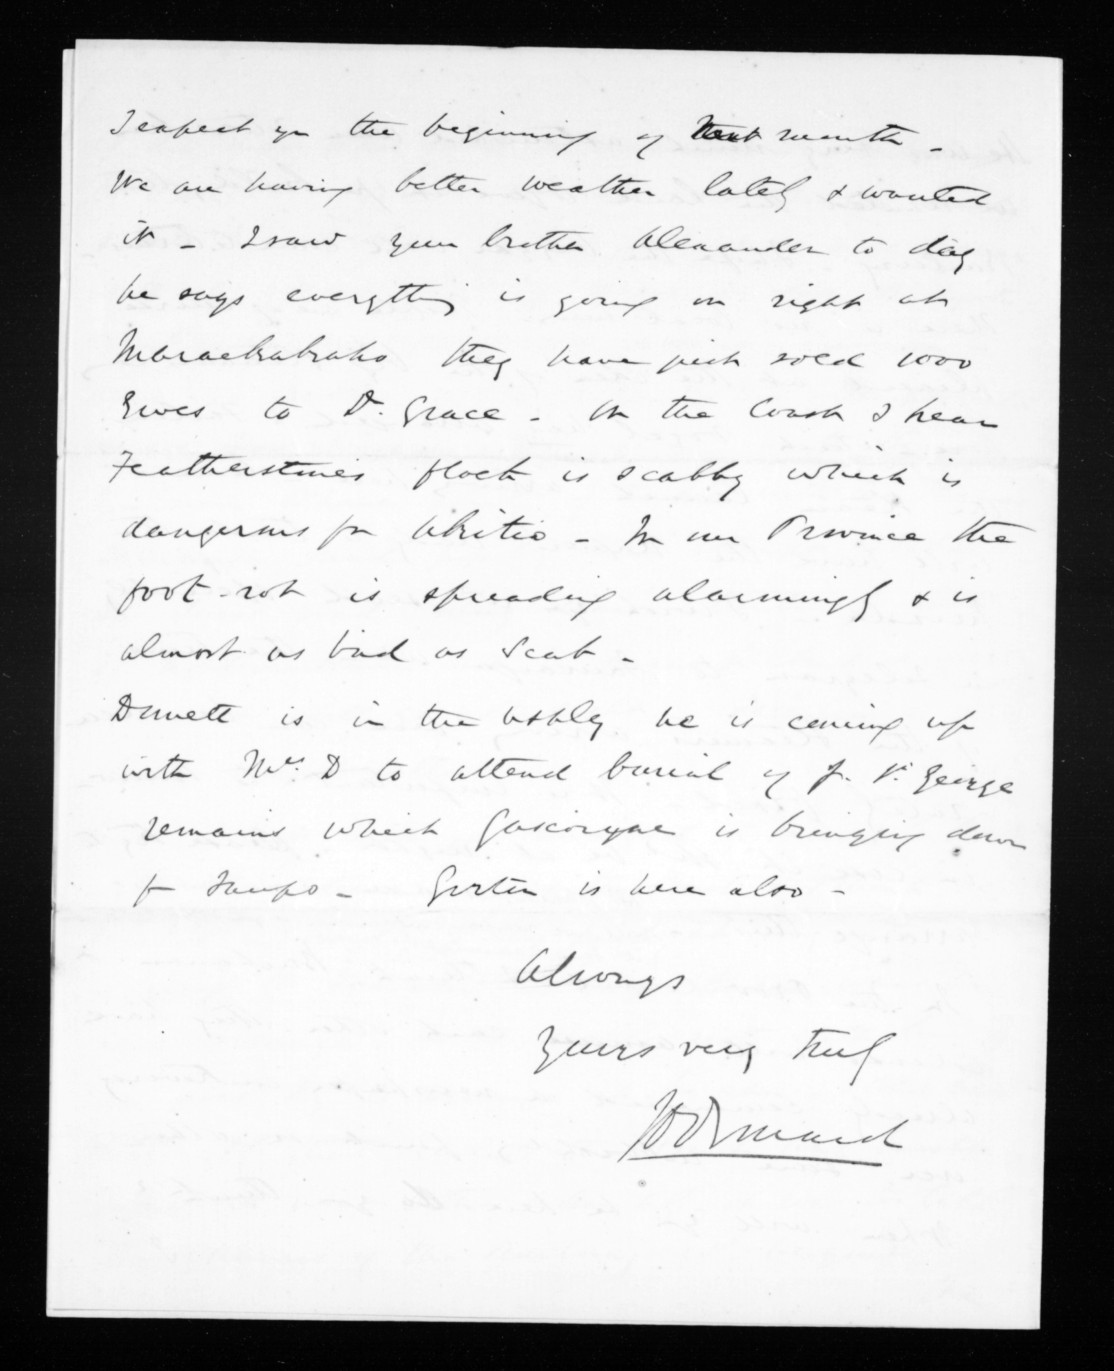 I expect you the beginning of next month -
We are having better weather lately & wanted
it - I saw your brother Alexander to day
he says everything is going on right at
Maraekakaho they have just sold 1000
Ewes to Dr. Grace - On the Coast I hear
Featherstone's flock is scabby which is
dangerous for Akitio - In our Province the
foot-rot is spreading alarmingly & is
almost as bad as Scab -
is in the he is coming up
with Mrs. D to attend burial of J. St George
remains which Gascoyne is bringing down
fr Taupo - is here also -
Always
Yours very truly